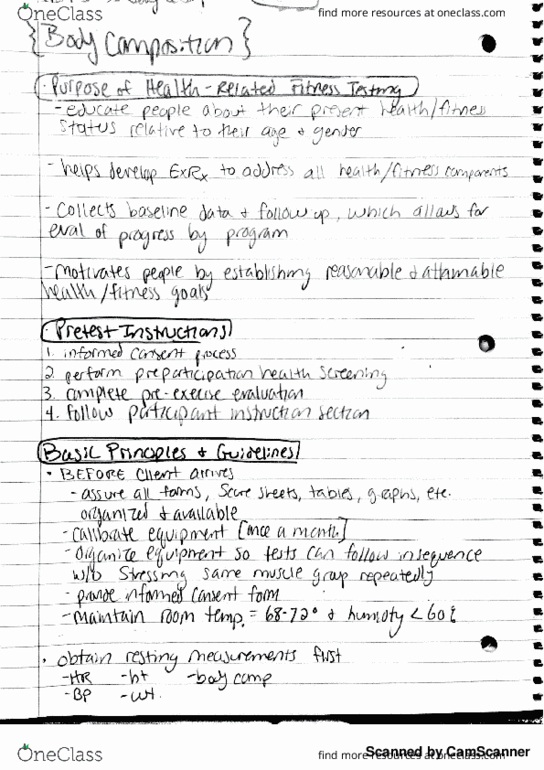 OneClass
find more resources at oneclass.com
{Body Composition}
Purpose of Health-Related Fitness Testing
- educate people about their present health/fitness
status relative to their age + gender
- helps develop ExRx to address all health/fitness components
- Collects baseline data + follow up, which allows for
eval of progress by program
- motivates people by establishing reasonable + attainable
health/fitness goals
Pretest Instructions
1. informed consent process
2. perform preparticipation health screening
3. complete pre-exercise evaluation
4. follow participant instruction section
Basic Principles + Guidelines
• BEFORE Client arrives
- assure all forms, score sheets, tables, graphs, etc.
organized + available
- Calibrate equipment [once a month]
- Organize equipment so tests can follow in sequence
w/o stressing same muscle group repeatedly
- provide informed consent form
- maintain room temp. = 68-72° + humidity <60%
• obtain resting measurements first
- HR - ht - body comp
- BP - wt.
OneClass
find more resources at oneclass.com
Scanned by CamScanner